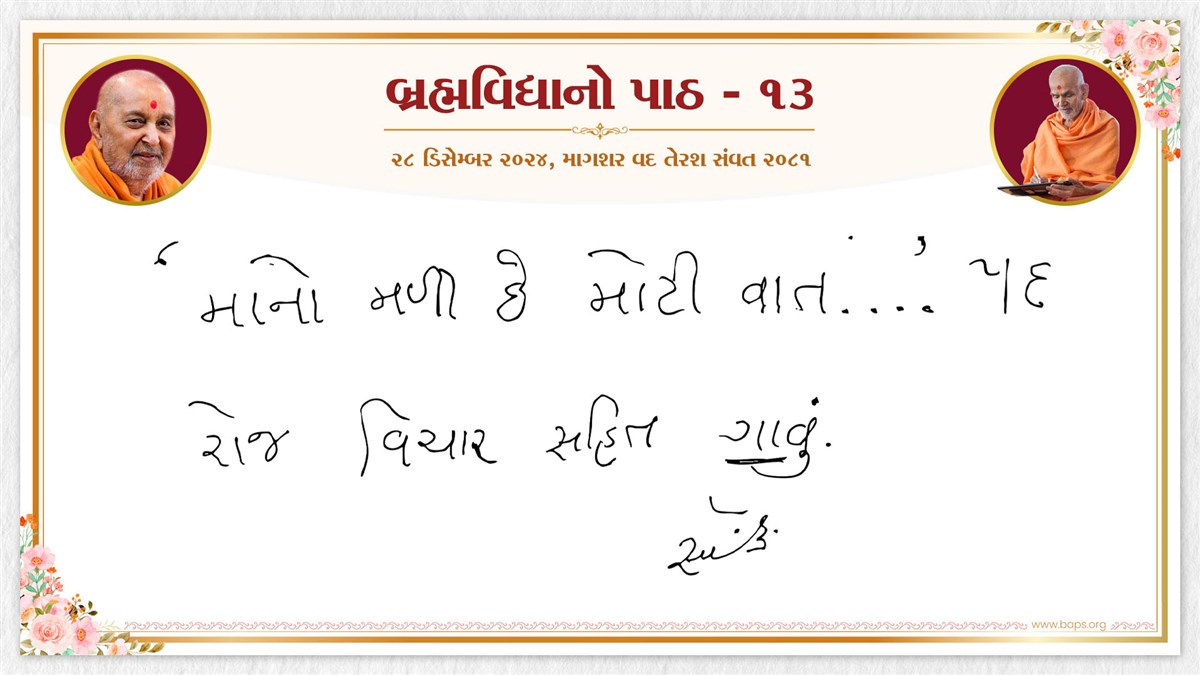 બ્રહ્મવિદ્યાનો પાઠ - ૧૩
૨૮ ડિસેમ્બર ૨૦૨૪, માગશર વદ તેરશ સંવત ૨૦૮૧
‘માનો મળી છે મોટી વાત....’ પદ
રોજ વિચાર સહિત ગાવું.
www.baps.org